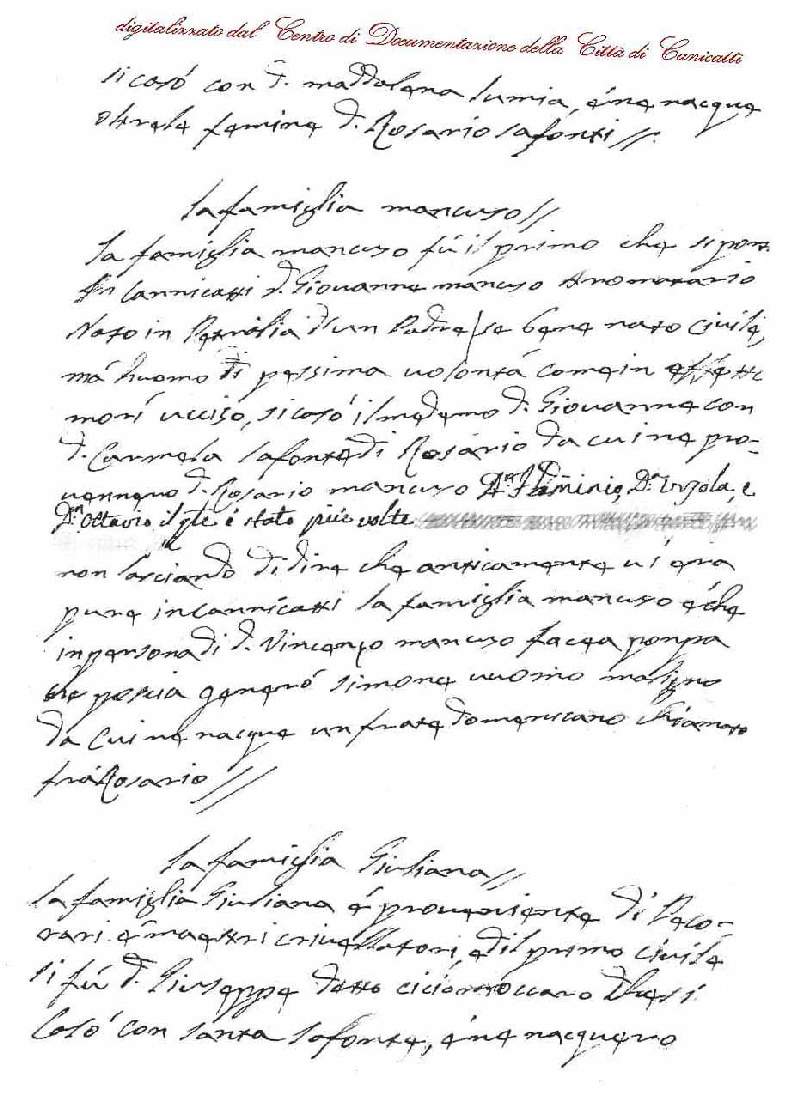 digitalizzato dal Centro di Documentazione della Città di Canicattì
si casò con d. maddalena lumia, é ne nacque
oltre le femine d. Rosario lafonti//.
la famiglia mancuso//
la famiglia mancuso fù il primo che si
In Cannicatti d. Giovanne mancuso
Nato in Petralia d'un Padre se bene nato civile,
má huomo di pessima uolontá come in effetti
morì ucciso, si casò il medemo d. Giovanne con
d. Carmela lafonte di Rosario da cui ne pro-
uennero d. Rosario mancuso Dn. Flaminio, Dn. Ursola, e
Dn. Octavio il qle è stato più volte
non lasciando di dire che anticamente ui era
pure in Cannicatti la famiglia mancuso é che
in persona di d. Vincenzo mancuso facea ponpa
poscia generó simone uuomo maligno
da Cui ne nacque un frate domenicano chiamato
frà Rosario//
la famiglia Giuliana//
la famiglia Giuliana é proueniente di Peco-
rari é maestri criuellatori, é il primo civile
si fú d. Giuseppe detto
Casò con santa lafonte, é ne nacquero